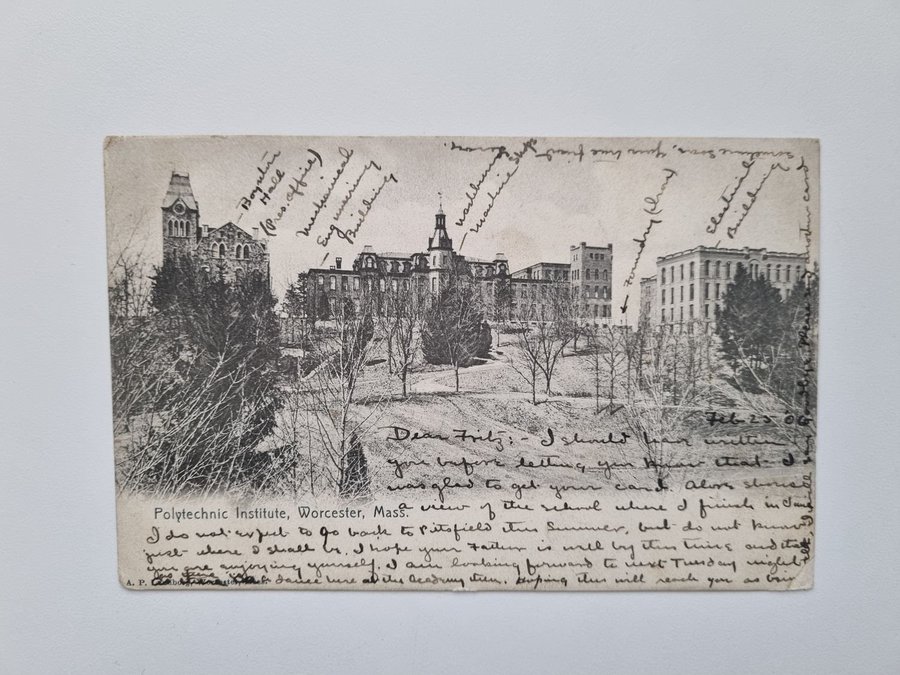 Boynton
Hall
(Pres. Office)
Mechanical
Engineering
Building
Washburn
Machine Shops
Foundry
Electrical
Building
Feb 25 06
Dear Fritz: - I should have written
you before letting you know that I
was glad to get your card. Above shows
a view of the school where I finish in June
Polytechnic Institute, Worcester, Mass.
I do not expect to go back to Pitsfield this Summer, but do not know
just where I shall be. I hope your Father is well by this time and that
you are enjoying yourself. I am looking forward to next Tuesday night
dance here at the Academy then. Hoping this will reach you as
A. P. Worcester
Sometime Soon. Your true friend
another card